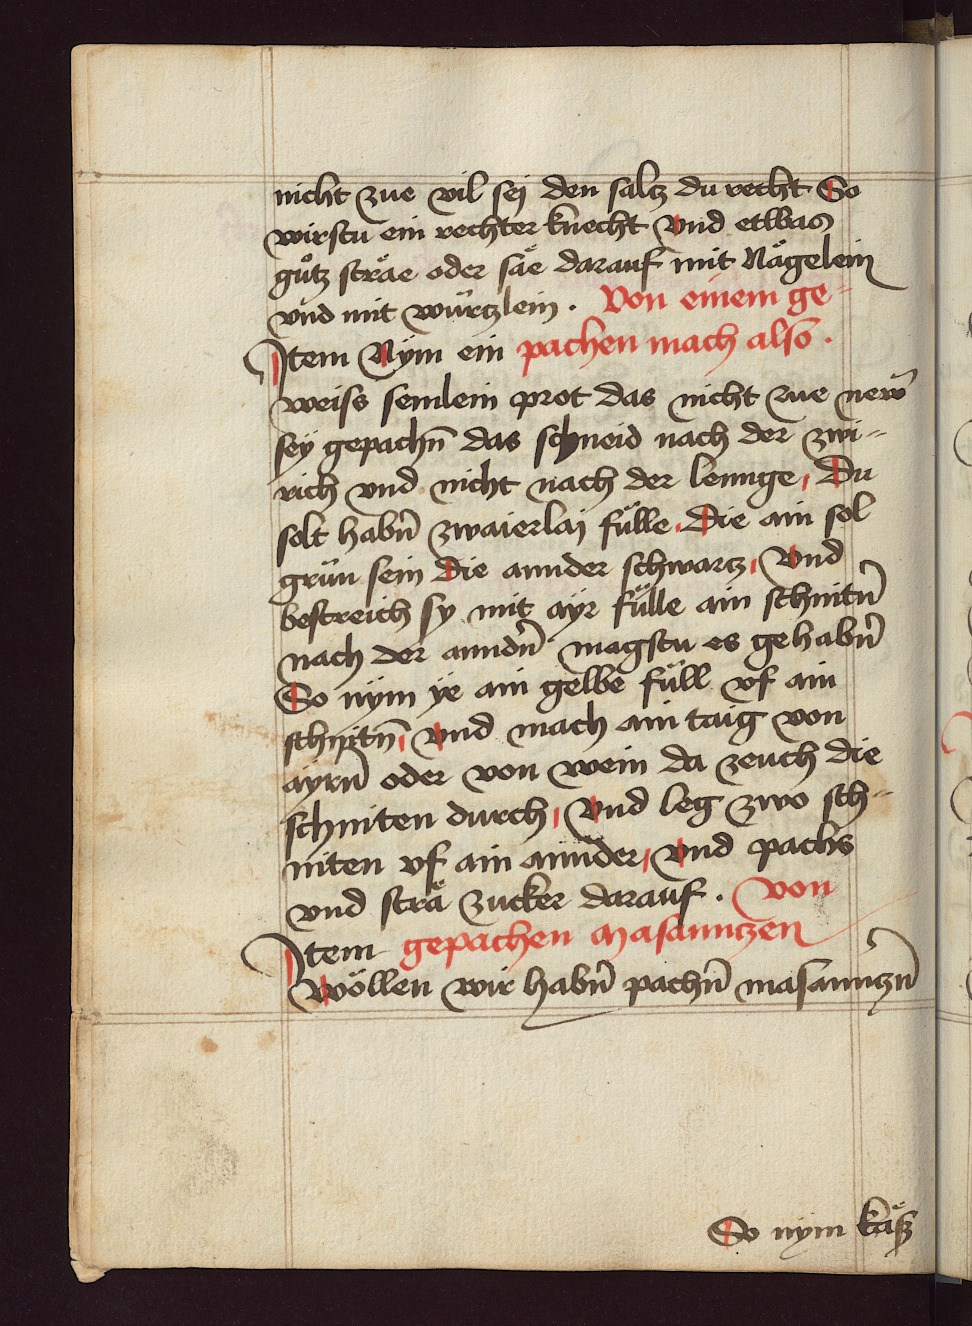 nicht zue vil sej den saltz du recht So
wirstu ein rechter knecht Vnd etwas
guͦtz sträe oder säe darauf mit Nägelein
vnd mit würtzlein . Von einem ge=
Item Nÿm ein pachen mach also .
weiss semlein prot das nicht zue new
seÿ gepachn̄ das schneid nach der zwi=
rich vnd nicht nach der lennge, Du
solt habn̄ zwaierlaj fülle, Die ain sol
grün sein Die annder schwartz, Vnd
bestreich sy mit aÿr fülle ain schnitn̄
nach der anndn̄ magstu es gehabn̄
So nÿm ÿe ain gelbe füll vf ain
schnitn̄, Vnd mach ain taig von
aÿrn̄ oder von wein da zeuch die
schniten durch, Vnd leg zwo sch=
niten vf ain annder, Vnd pachs
vnd strä zucker darauf . Von
Item gepachen Masanntzen
Wöllen wir habn̄ pachn̄ masanntzn̄
So nÿm käß